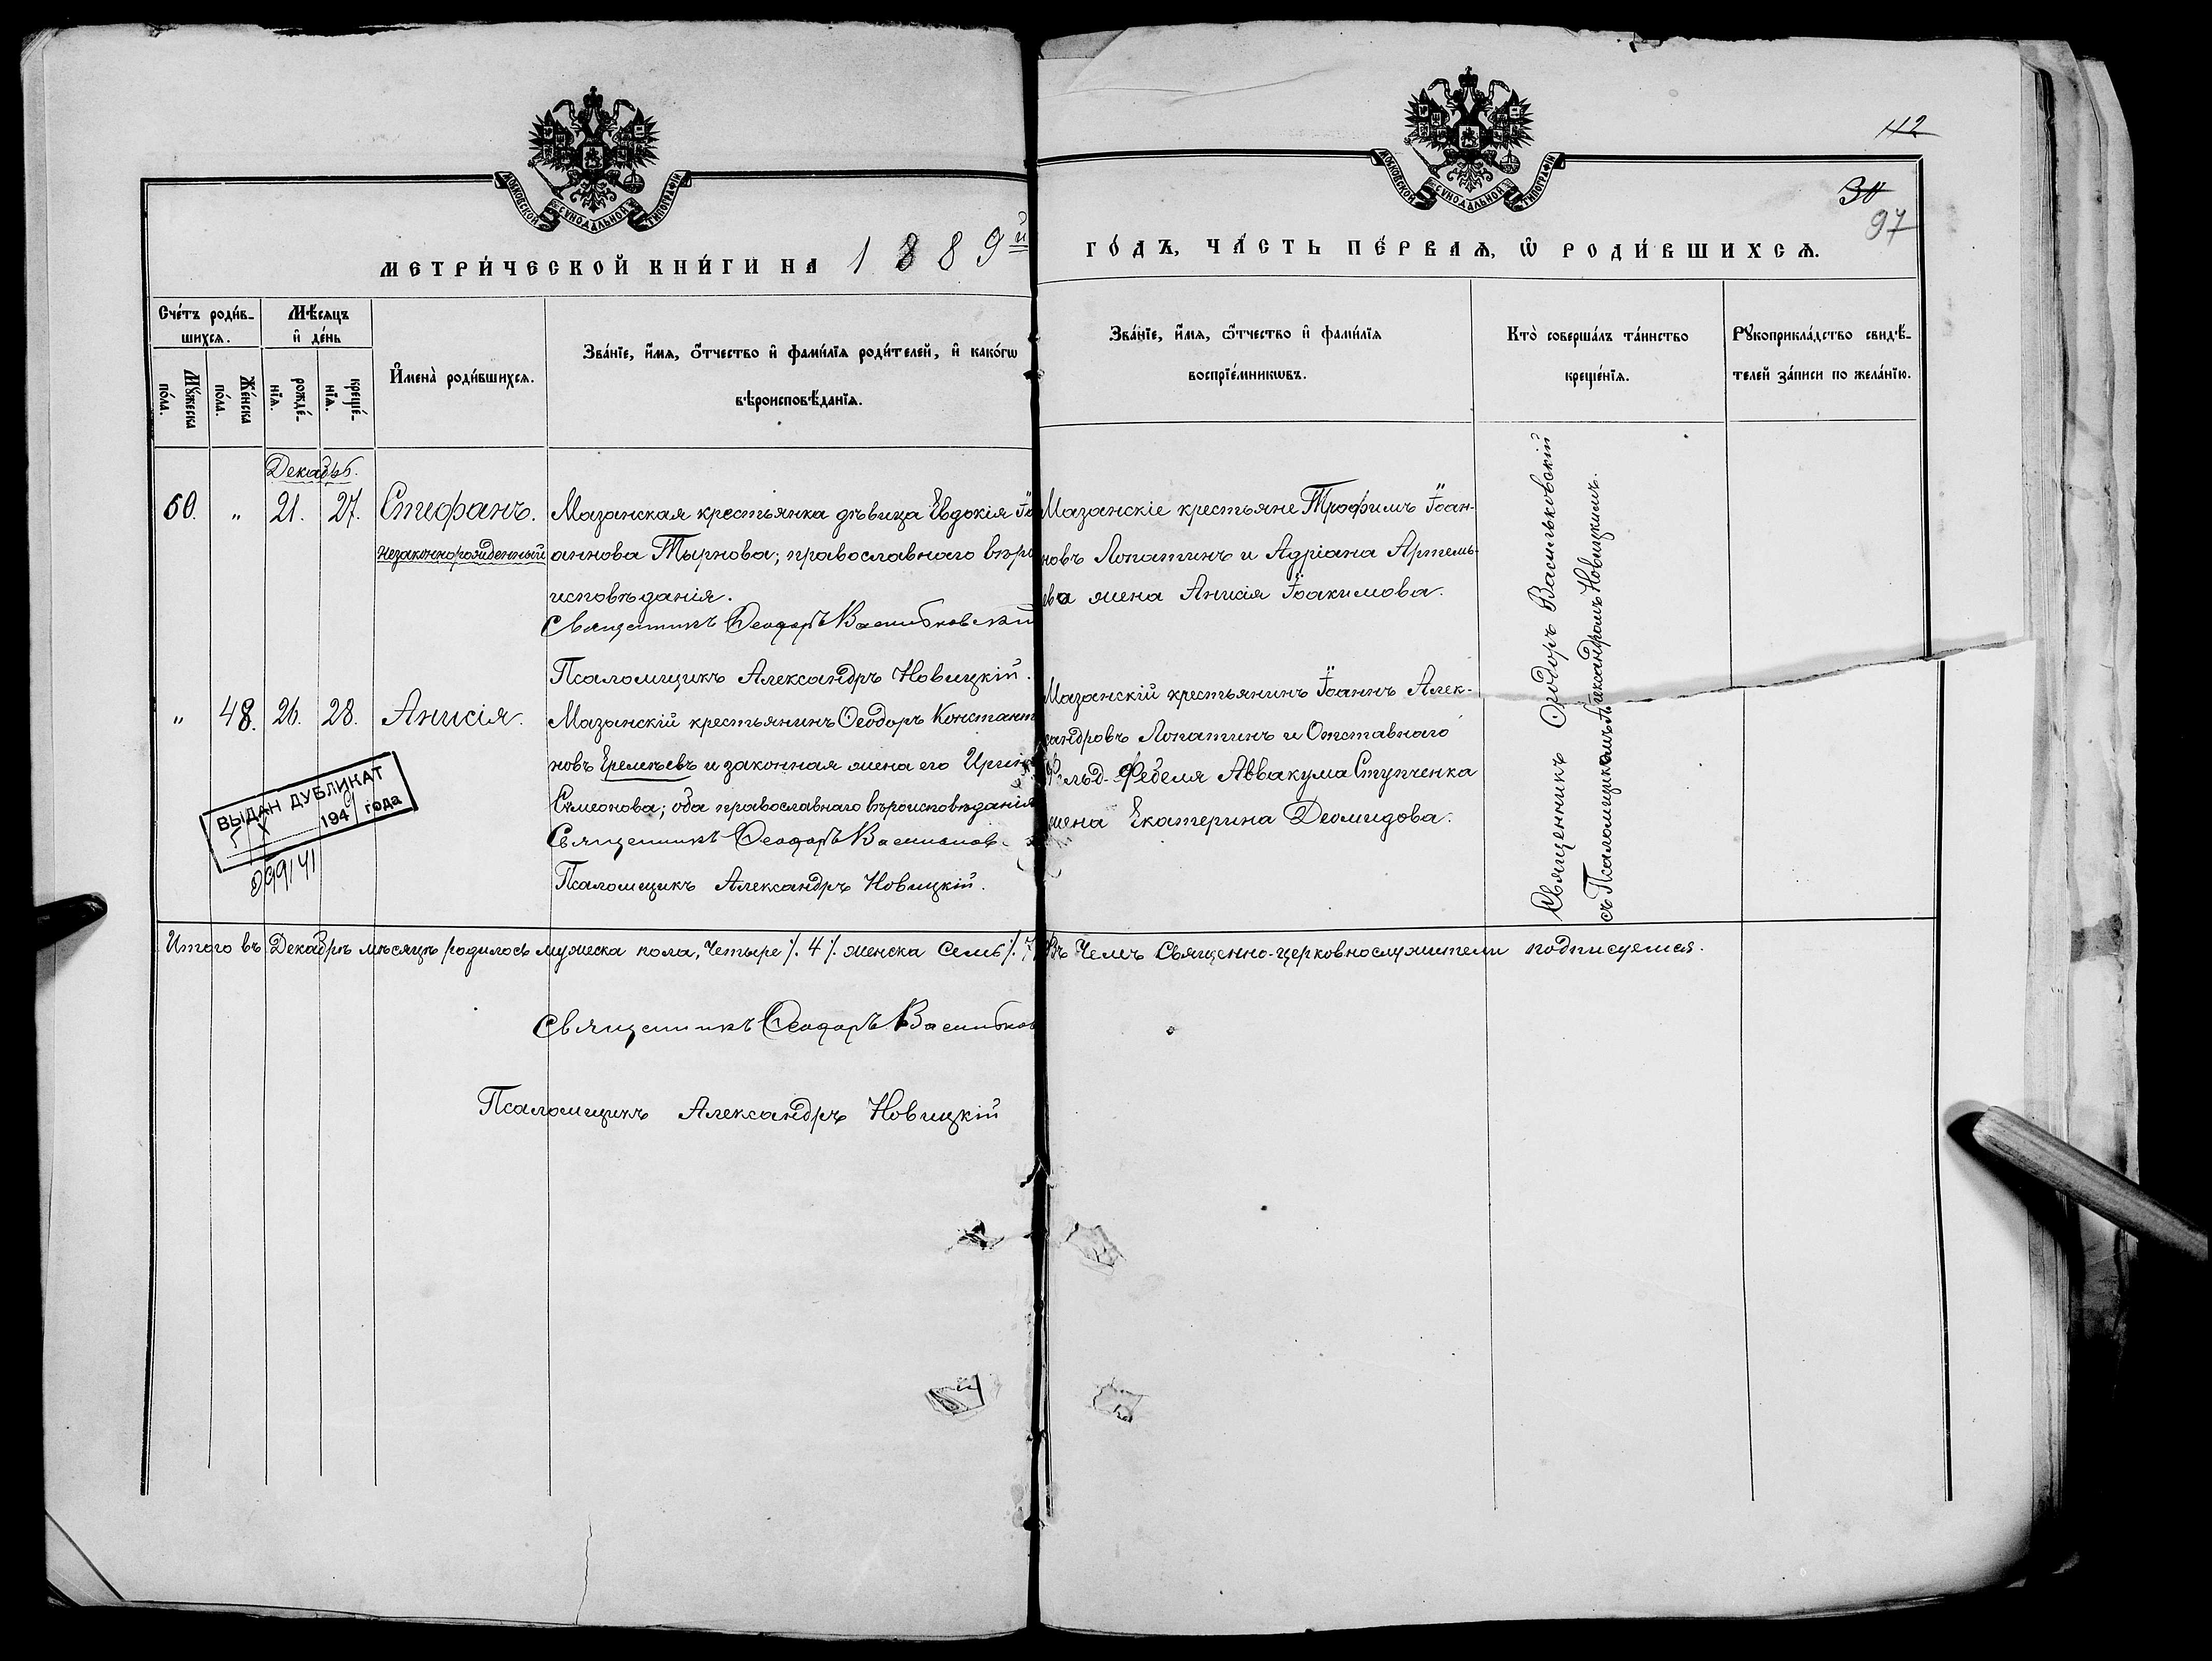 112
30
97
МОСКОВСКОЙ СѴНОДАЛЬНОЙ ТИПОГРАФІИ
МОСКОВСКОЙ СѴНОДАЛЬНОЙ ТИПОГРАФІИ
МЕТРИ́ЧЕСКОЙ КНИ́ГИ НА 1889й
ГО́ДЪ, ЧА́СТЬ ПЕ́РВАѦ, Ѽ РОДИ́ВШИХСѦ.
Сче́тъ роди́в-
шихсѧ.
Мѣ́сѧцъ
и҆ де́нь
Мꙋ́жеска
по́ла.
Же́нска
по́ла.
рожде́-
нїѧ.
креще́-
нїѧ.
И҆мена̀ роди́вшихсѧ.
Зва́нїе, и҆́мѧ, ѻ҆́тчество и҆ фами́лїѧ роди́телей, и҆ како́гѡ
вѣроисповѣ́данїѧ.
Зва́нїе, и҆́мѧ, ѻ҆́тчество и҆ фами́лїѧ
воспрїе́мникѡвъ.
Кто̀ соверша́лъ та́инство
креще́нїѧ.
Рꙋкоприкла́дство свидѣ́-
телей за́писи по жела́нїю.
Декабрь.
60. „ 21. 27. Стефанъ.
незаконнорожденный
Мазанская крестьянка дѣвица Евдокія Іо
аннова Тырнова; православнаго вѣро
исповѣданія.
Священникъ Ѳеодоръ Васильковскій
Псаломщикъ Александръ Новицкій.
Мазанскіе крестьяне Трофимъ Іоан-
новъ Лопатинъ и Адріана Артемь-
ева жена Анисія Іоакимова.
„ 48. 26. 28. Анисія.
Мазанскій крестьянинъ Ѳеодоръ Констант
новъ Еремѣевъ и законная жена его Ирина
Симеонова; оба православнаго вѣроисповѣданія
Священникъ Ѳеодоръ Васильков
Псаломщикъ Александръ Новицкій.
Мазанскій крестьянинъ Іоаннъ Алек-
сандровъ Лопатинъ и Отставнаго
Фельд-Фебеля Аввакума Ступченка
жена Екатерина Деомидова.
Священникъ Ѳеодоръ Васильковскій
съ Псаломщикомъ Александромъ Новицкимъ.
ВЫДАН ДУБЛИКАТ
5 X 1941 года
Итого въ Декабрѣ мѣсяцѣ родилось мужеска пола, Четыре /. 4 /. женска Семь /. 7 Въ чемъ Священно-церковнослужители подписуемся.
Священникъ Ѳеодоръ Васильков
Псаломщикъ Александръ Новицкій